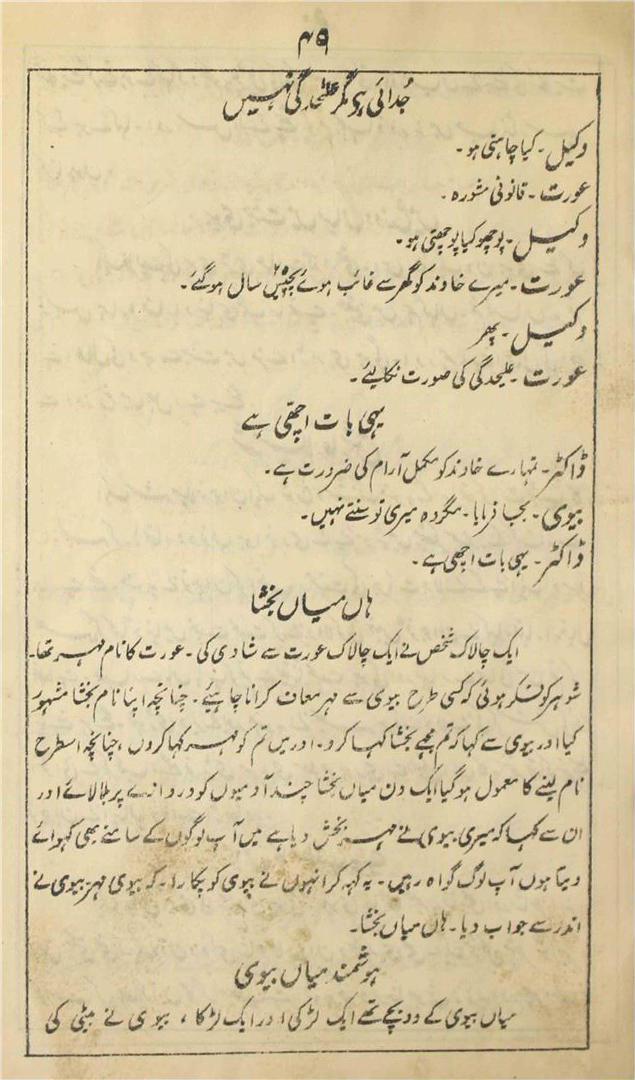 ۴۹
جُدائی ہو مگر علیٰحدگی نہیں
وکیل۔ کیا چاہتی ہو۔
عورت۔ قانونی مشورہ۔
وکیل۔ پوچھو کیا پوچھتی ہو۔
عورت۔ میرے خاوند کو گھر سے غائب ہوئے پچیس ۲۵ سال ہو گئے۔
وکیل۔ پھر
عورت۔ علیحدگی کی صورت نکالیئے۔
یہی بات اچھی ہے
ڈاکٹر۔ تمہارے خاوند کو مکمل آرام کی ضرورت ہے۔
بیوی۔ بجا فرمایا۔ مگر وہ میری تو سنتے نہیں۔
ڈاکٹر۔ یہی بات اچھی ہے۔
ہاں میاں بخشا
ایک چالاک شخص نے ایک چالاک عورت سے شادی کی۔ عورت کا نام مہر تھا۔
شوہر کو فکر ہوئی کہ کسی طرح بیوی سے مہر معاف کرانا چاہیئے۔ چنانچہ اپنا نام بخشا مشہور
کیا اور بیوی سے کہا کہ تم مجھے بخشا کہا کرو۔ اور میں تم کو مہر کہا کروں، چنانچہ اسطرح
نام لینے کا معمول ہو گیا ایک دن میاں بخشا چند آدمیوں کو دروازے پر بلا لائے اور
ان سے کہا کہ میری بیوی نے مہر بخش دیا ہے میں آپ لوگوں کے سامنے بھی کہوائے
دیتا ہوں آپ لوگ گواہ رہیں۔ یہ کہہ کر انہوں نے بیوی کو پکارا۔ کہ بیوی مہر بیوی نے
اندر سے جواب دیا۔ ہاں میاں بخشا۔
ہوشمند میاں بیوی
میاں بیوی کے دو بچے تھے ایک لڑکی اور ایک لڑکا، بیوی نے بیٹی کی